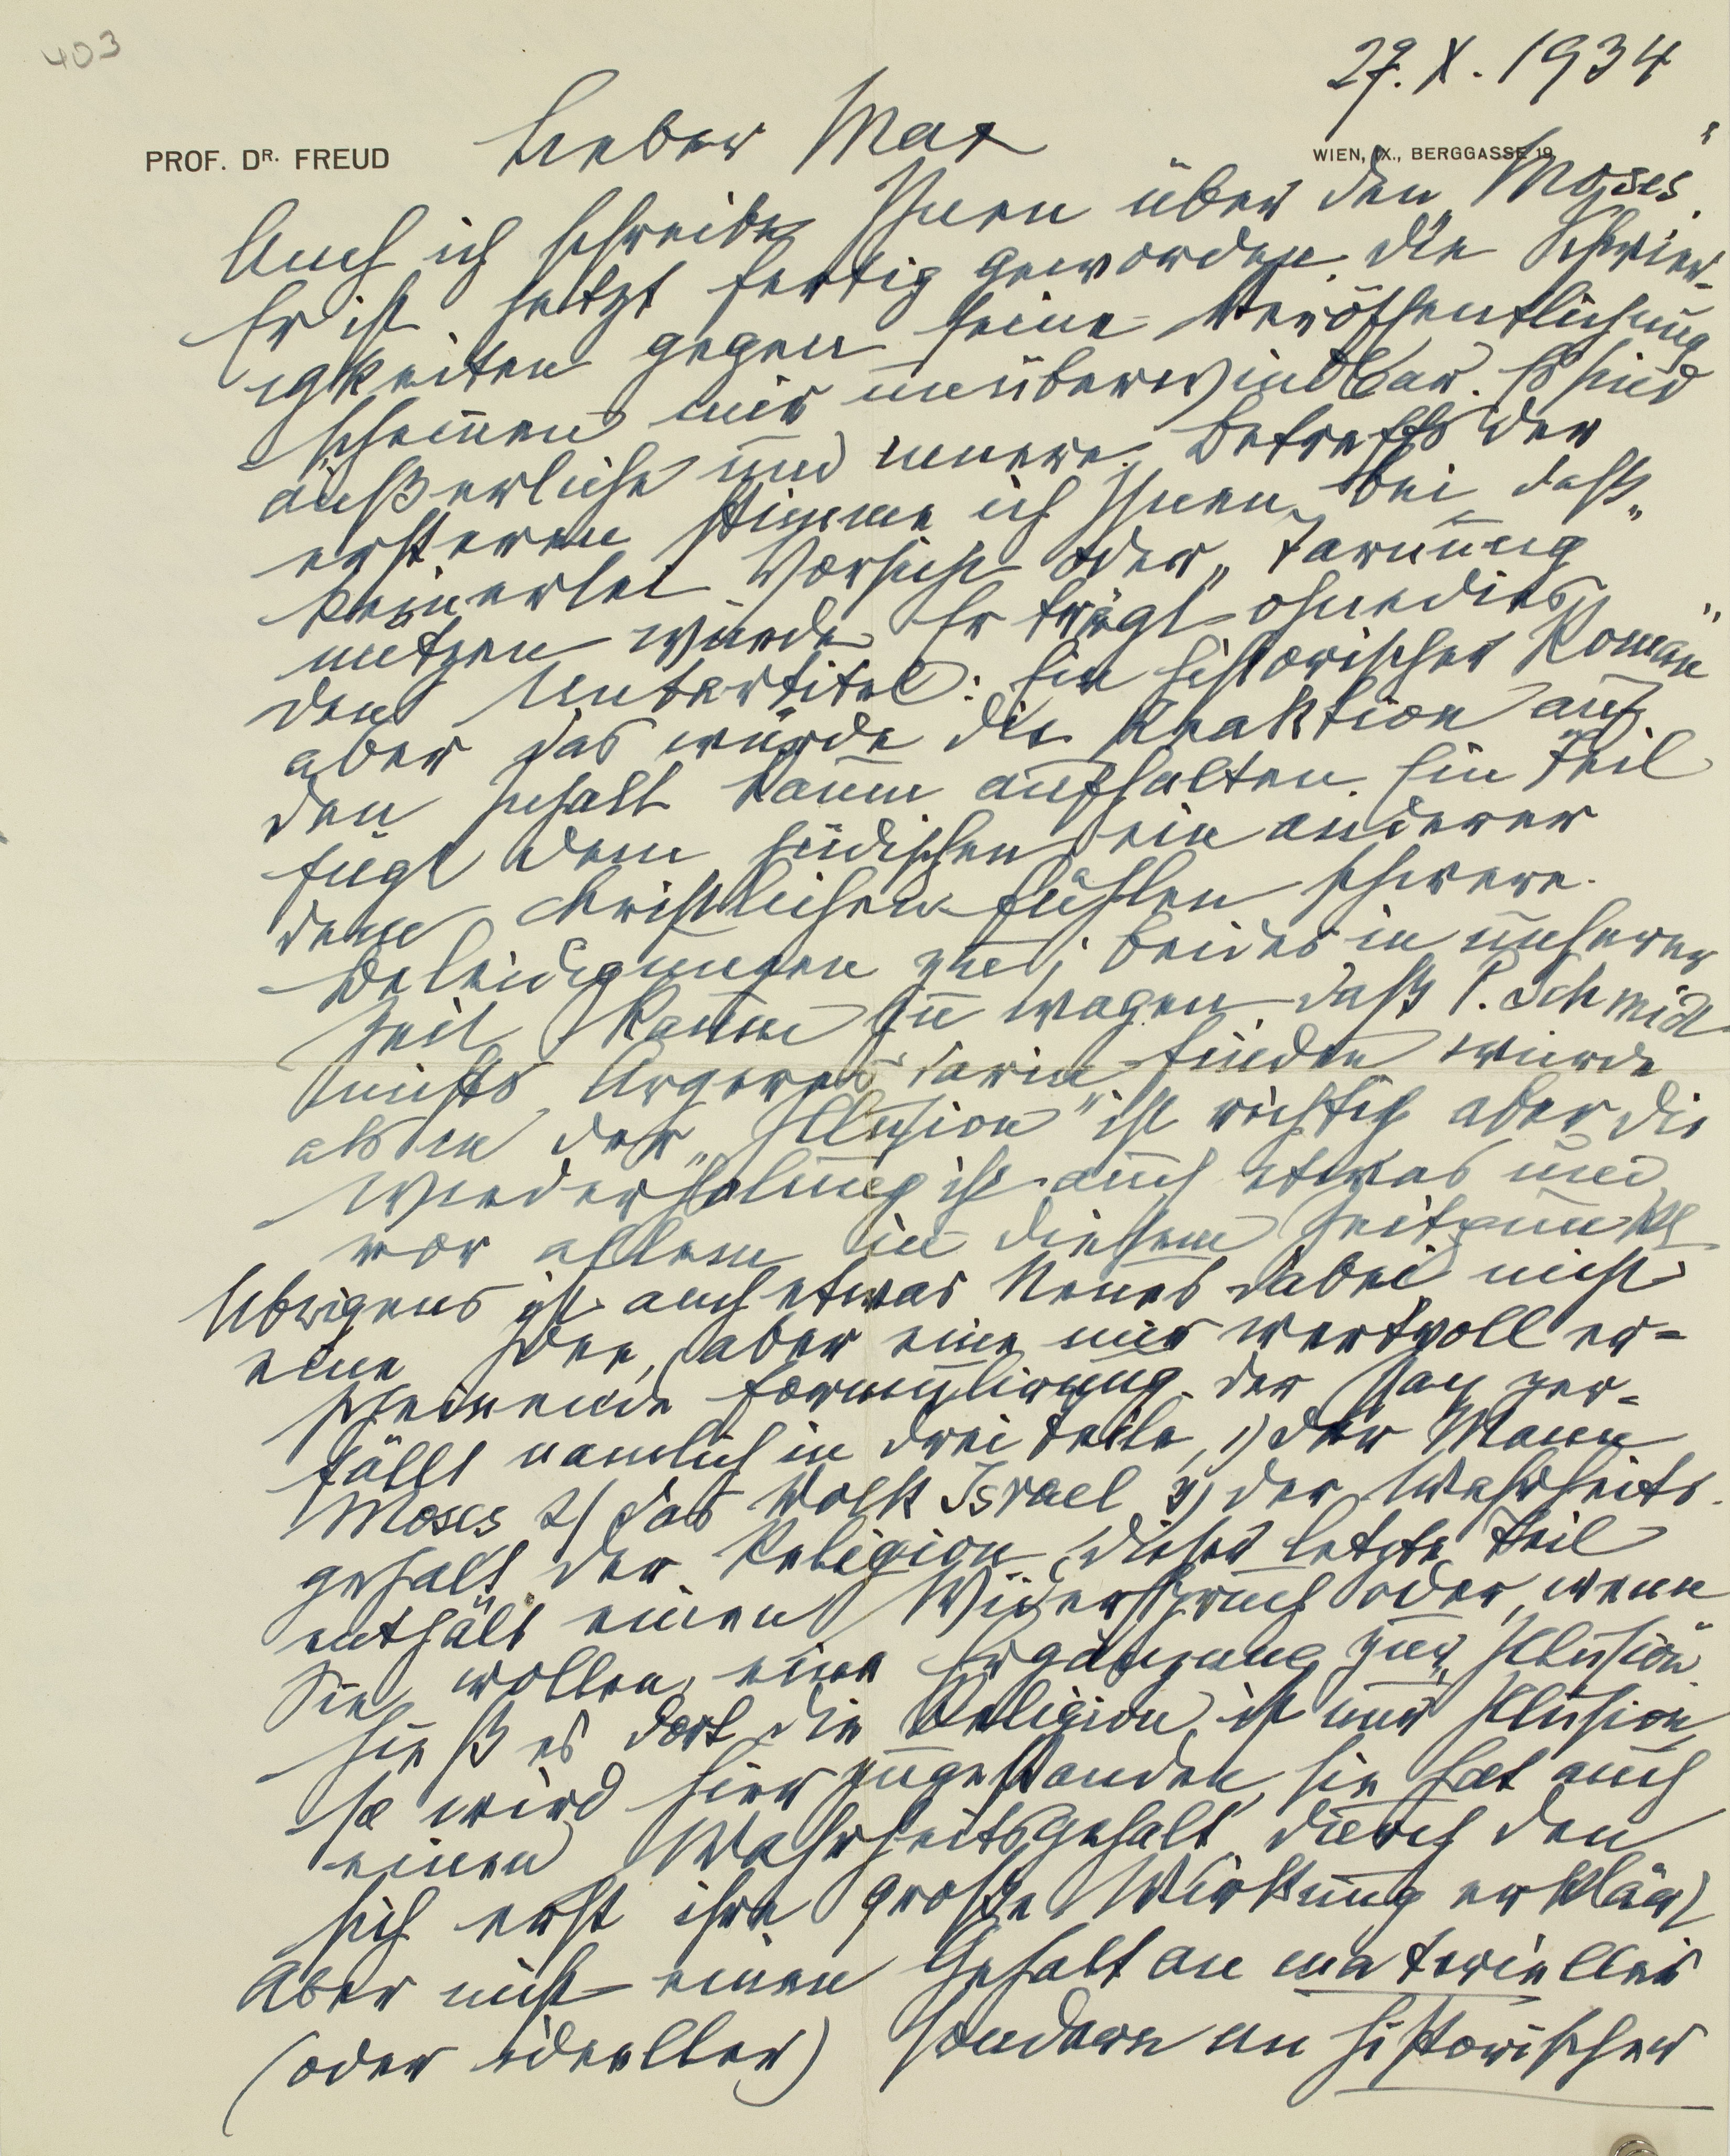 403
27. X. 1934
Lieber Max
PROF. DR. FREUD
WIEN, IX., BERGGASSE 19.
Auch ich schreibe Ihnen über den „Moses“.
Er ist jetzt fertig geworden. die Schwier-
igkeiten gegen seine Veröffentlichung
scheinen mir unüberwindbar. Es sind
äußerliche und innere. Betreffs der
ersteren stimme ich Ihnen bei, daß
keinerlei Vorsicht oder „Tarnung“
nützen würde. Er trägt ohnedies
den Untertitel: Ein historischer Roman“
aber das würde die Reaktion auf
den Inhalt kaum aufhalten. Ein Teil
fügt dem jüdischen, ein anderer
dem christlichen Fühlen schwere
Beleidigungen zu; beides in unserer
Zeit kaum zu wagen. daß P. Schmidt
nichts Ärgeres darin finden würde
als in der „Illusion“ ist richtig aber die
Wiederholung ist auch etwas und
vor allem in diesem Zeitpunkt
Übrigens ist auch etwas Neues dabei nicht
eine Idee, aber eine mir wertvoll er-
scheinende Formulirung. der     zer-
fällt nämlich in drei Teile, 1) der Mann
Moses 2) das Volk Israel 3) der Wahrheits-
gehalt der Religion. dieser letzte Teil
enthält einen Widerspruch oder, wenn
Sie wollen, eine Ergänzung zur „Illusion“
hieß es dort, die Religion ist nur Illusion,
so wird hier zugestanden, sie hat auch
einen Wahrheitsgehalt durch den
sich erst ihre große Wirkung erklärt
Aber nicht einen Gehalt an materieller
(oder ideeller) sondern an historischer